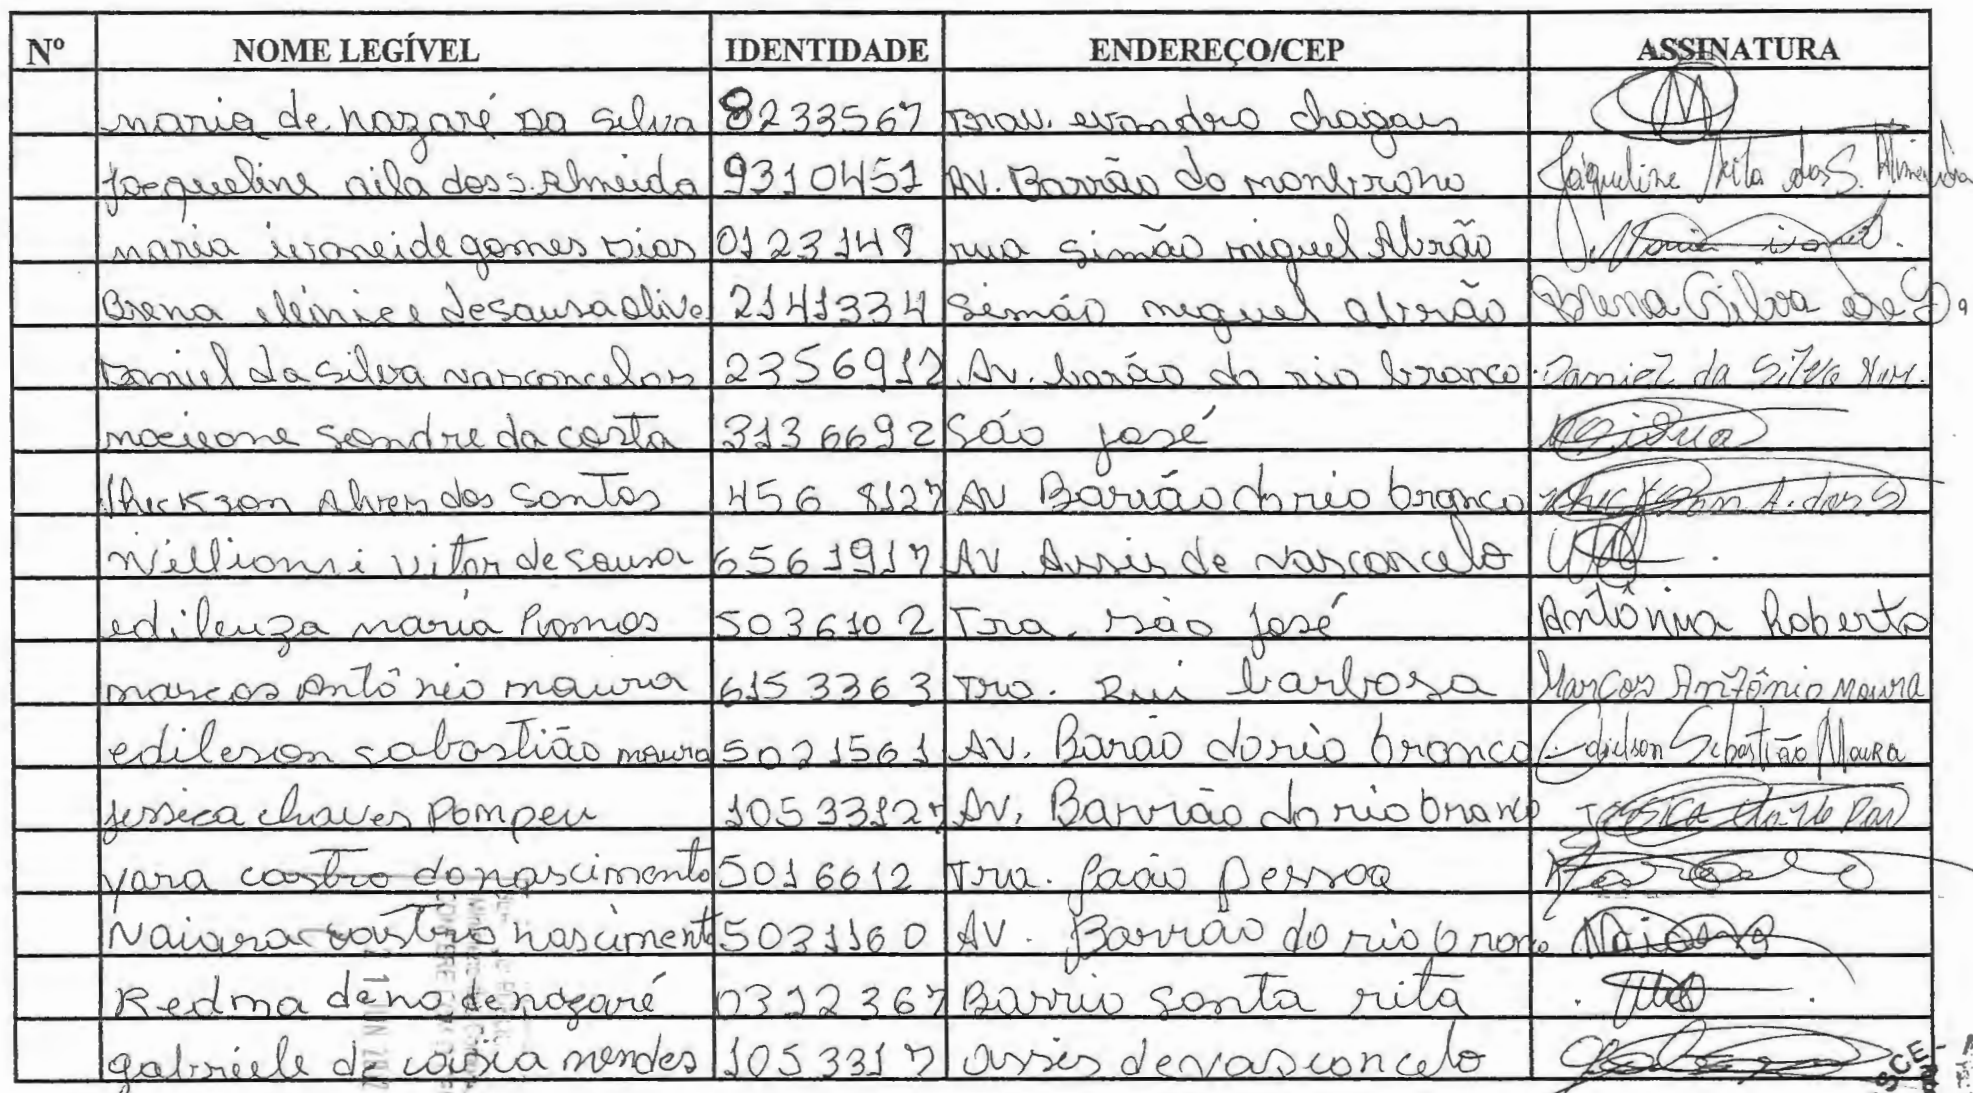 Nº NOME LEGÍVEL IDENTIDADE ENDEREÇO/CEP ASSINATURA
maria de nazaré Da Silva 8233567 Trav. evandro chagas
Jacqueline nila dos s. Almeida 9310451 AV. Barrão do monbrono Jaqueline Nita dos S. Almeida
maria ivoneide gomes Dias 0123148 rua Simão miguel Abrão Maria
Brena elenice de sousa olive 2141334 Simão miguel abrão Brena Silva de S.
Daniel da Silva vasconcelos 2356917 Av. barão do rio branco Daniel da Silva
mocione Sendre da costa 3136692 São josé
Theckson Alves dos Santos 456 8127 AV Barrão do rio branco A. dos S
Willioms i vitor de sousa 6561917 AV Assis de vasconcelo
edileuza maria Ramos 5036102 Tra. são josé Antônia Roberto
marcos Antônio moura 6153363 Tra. Rui barbosa Marcos Antônio Moura
edileson sabastião moura 5021561 AV. Barão do rio branco Edielson Sebastião Moura
jessica chaves Pompeu 10533127 AV. Barrão do rio branco Jessica
yara castro do nascimento 5016612 Tra. joão pessoa
Naiara castro nasciment 5031160 AV. Barrão do rio brano Naiara
Redma deno de nazaré 0312367 Barrio Santa rita
gabriele de cássia mendes 1053317 assis de vasconcelo
21 JUN
SCE